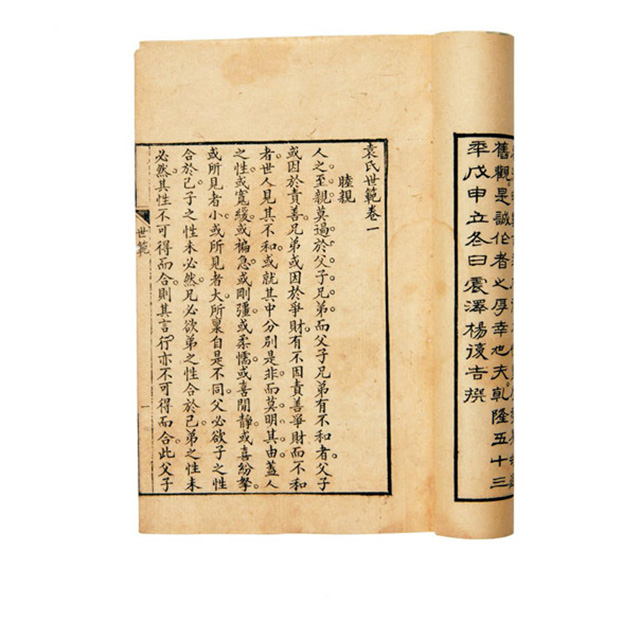 舊觀是誠作者之厚幸也夫乾隆五十三
年戊申立冬日震澤楊復吉撰
袁氏世範卷一
睦親
人之至親。莫過於父子兄弟。而父子兄弟有不和者。父子
或因於責善。兄弟或因於爭財。有不因責善爭財而不和
者。世人見其不和。或就其中分別是非而莫明其由。蓋人
之性。或寬緩。或褊急。或剛彊。或柔懦。或喜閒靜。或喜紛拏。
或所見者小。或所見者大。所稟自是不同。父必欲子之性
合於己。子之性未必然。兄必欲弟之性合於己。弟之性未
必然。其性不可得而合。則其言行亦不可得而合。此父子
世範
一